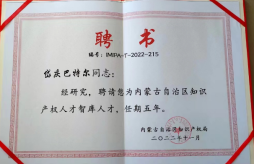 聘书
编号：IMIPA-T-2022-215
岱庆巴特尔同志：
经研究，聘请您为内蒙古自治区知识
产权人才智库人才，任期五年。
内蒙古自治区知识产权局
二〇二二年十一月